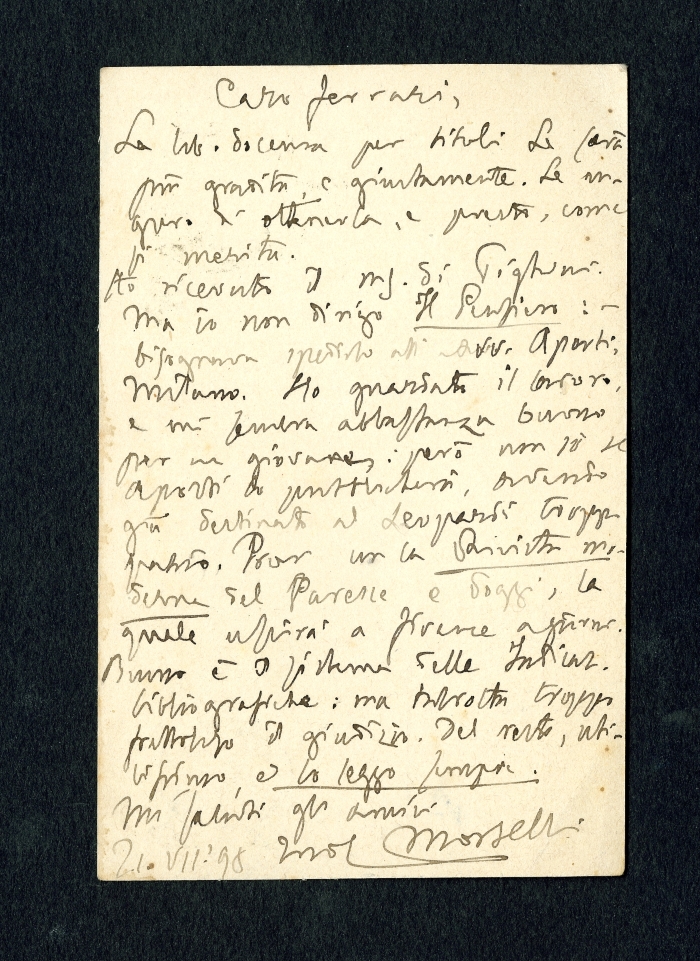 Caro Ferrari,
La lib. docenza per titoli Le sarà
più gradita, e giustamente. Le au-
guro di ottenerla, e presto, come
si merita.
Ho ricevuto il ms. di Tiglioni.
Ma io non dirigo Il Pensiero : -
bisognava spedirlo all' Avv. Aporti,
Milano. Ho guardato il lavoro,
e mi sembra abbastanza buono
per un giovane; però non so se
Aporti lo pubblicherà, avendo
già destinato al Leopardi troppo
spazio. Provi con la Rivista mo-
derna del Parese e d'oggi, la
quale uscirà a Firenze a giorni.
Buono è il sistema delle Indicaz.
bibliografiche : ma talvolta troppo
frettoloso il giudizio. Del resto, uti-
lissimo, e lo leggo sempre.
Mi saluti gli amici
21 VII. 98 Morselli